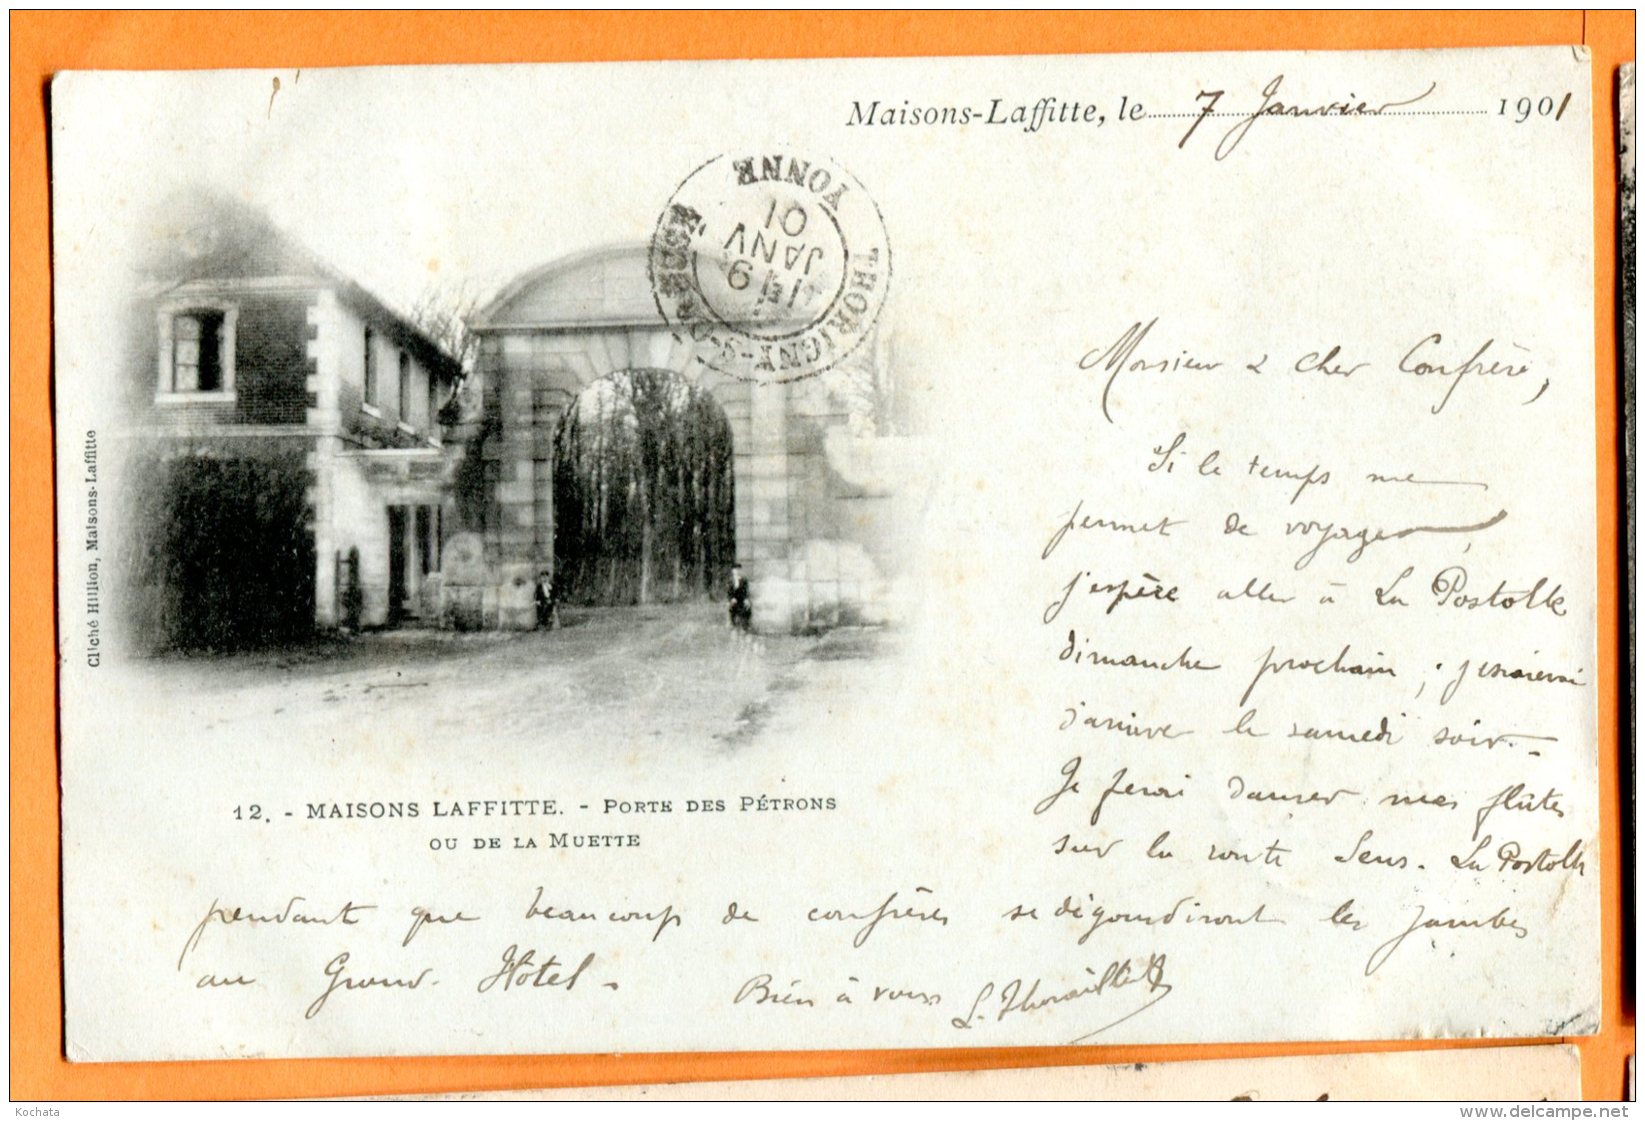 Maisons-Laffitte, le 7 Janvier 1901
THORIGNY-S-OREUSE
YONNE
9
JANV
01
Monsieur & cher Confrère,
Si le temps me
permet de voyager,
j'espère aller à La Postolle
dimanche prochain ;
d'arriver le samedi soir. -
Je ferai danser mes flûtes
sur la route Sens. La Postolle
pendant que beaucoup de confrères se dégourdiront les jambes
au Grand-Hôtel -
Bien à vous
Cliché Hillion, Maisons-Laffitte
12. - MAISONS LAFFITTE. - PORTE DES PÉTRONS
OU DE LA MUETTE
Kochata
www.delcampe.net